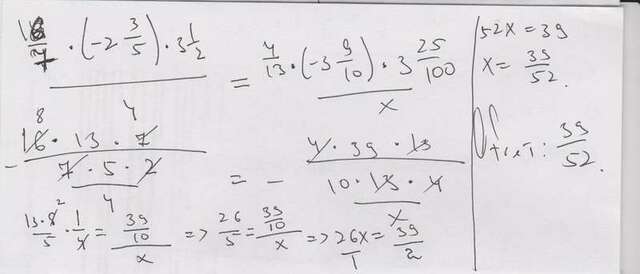 16/7 · (-2 3/5) · 3 1/2 = 4/13 · (-3 9/10) · 3 25/100 / x
- 16 · 13 · 7 / 7 · 5 · 2 = - 4 · 39 · 13 / 10 · 13 · 4 / x
8 4 4
13·8²/5 · 1/4 = 39/10 / x => 26/5 = 39/10 / x => 26x/1 = 39/2
52x = 39
x = 39/52.
Ответ: 39/52.